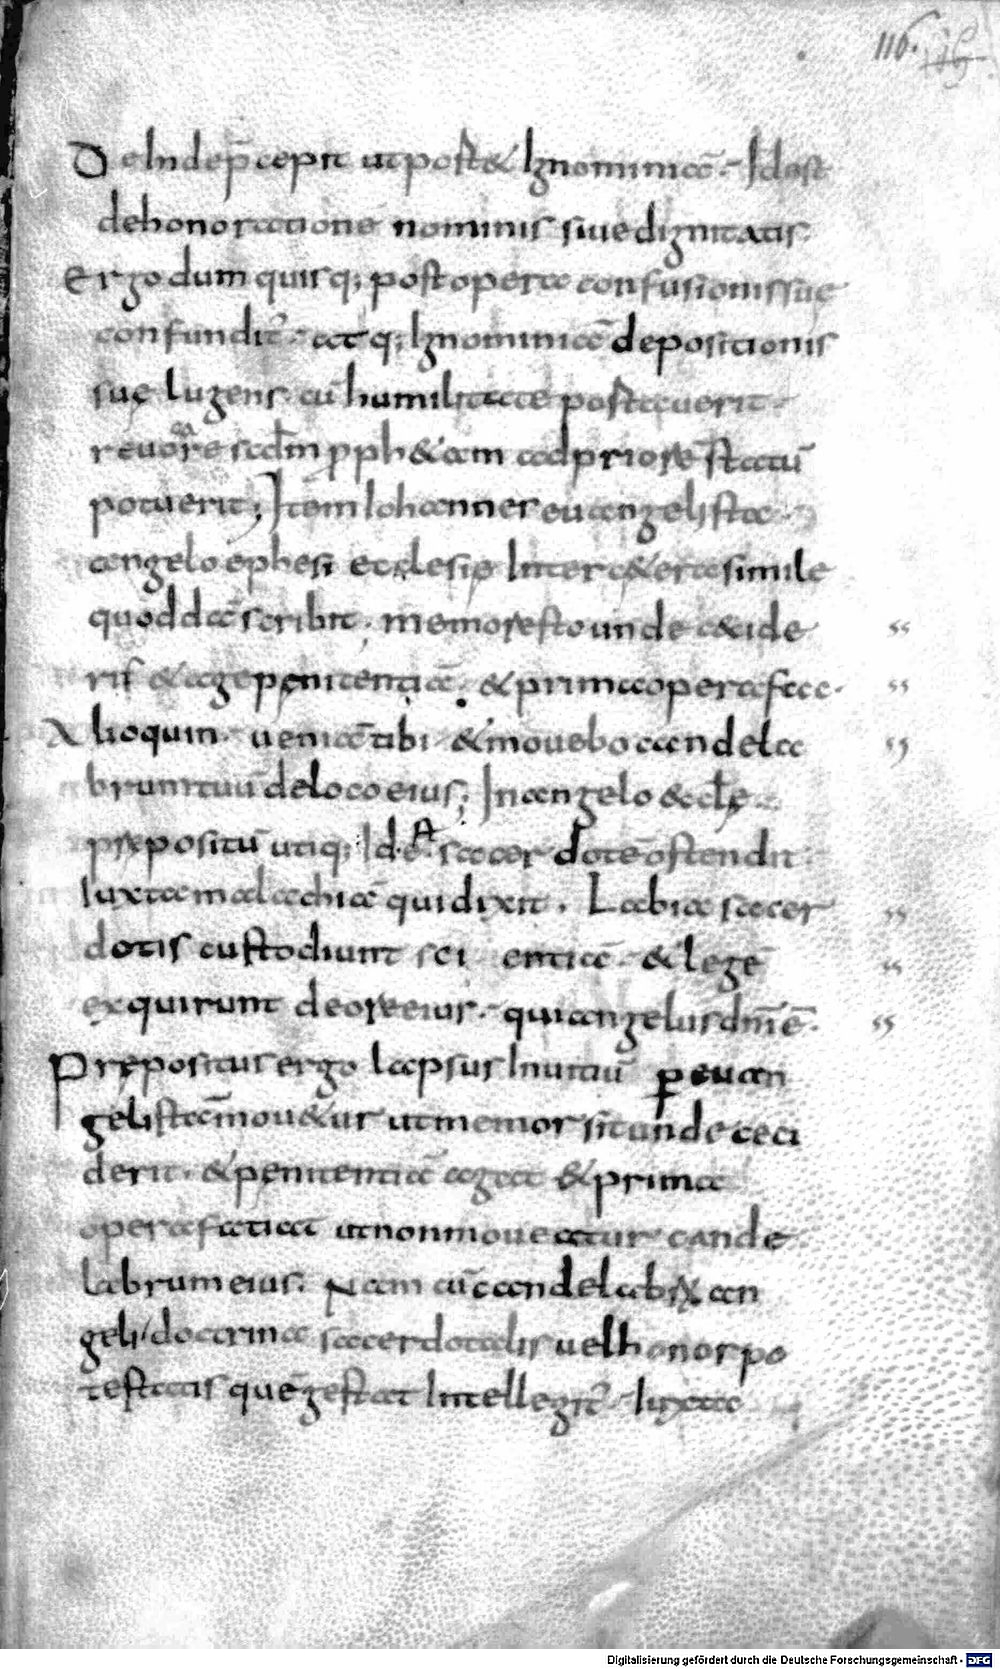 116. 116
DeIndep̄cepit utpost& Ignominiā. Idest
dehonorationē nominis siuedignitatis.
Ergodum quisq; postopera confusionissuę
confundit̄. atq; Ignominiā depositionis
suę lugens. cū humilitate postauerit.
reuocare scdm̄ pph&am adpriorē statū
potuerit; Itēm Iohannes euangelista
angelo ephesi ecclesię Inter c&era simile
quoddā scribit. memorestounde c&ide
ris &agepęnitentiā. &primaoperafac.
Alioquin. ueniā tibi &mouebocandela
brumtuū delocoeius; Inangelo &cclę
prępositū utiq; Id.ē. sacerdotē ostendit.
Iuxtamalachiā quidixit. Labia sacer
dotis custodiunt scientiā. &legē
exquirunt deoreeius. quiangelusdn̄iē.
Prępositusergo lapsus Inuitiū peruan
gelistāmou&ur utmemorsitundececi
derit. &pęnitentiā agat &prima
operafatiat utnonmoueatur cande
labrumeius. Nam cūcandelabrū an
geli doctrina sacerdotalis uelhonorpo
testatis quēgestat Intellegit̄. Iuxta
Digitalisierung gefördert durch die Deutsche Forschungsgemeinschaft - DFG